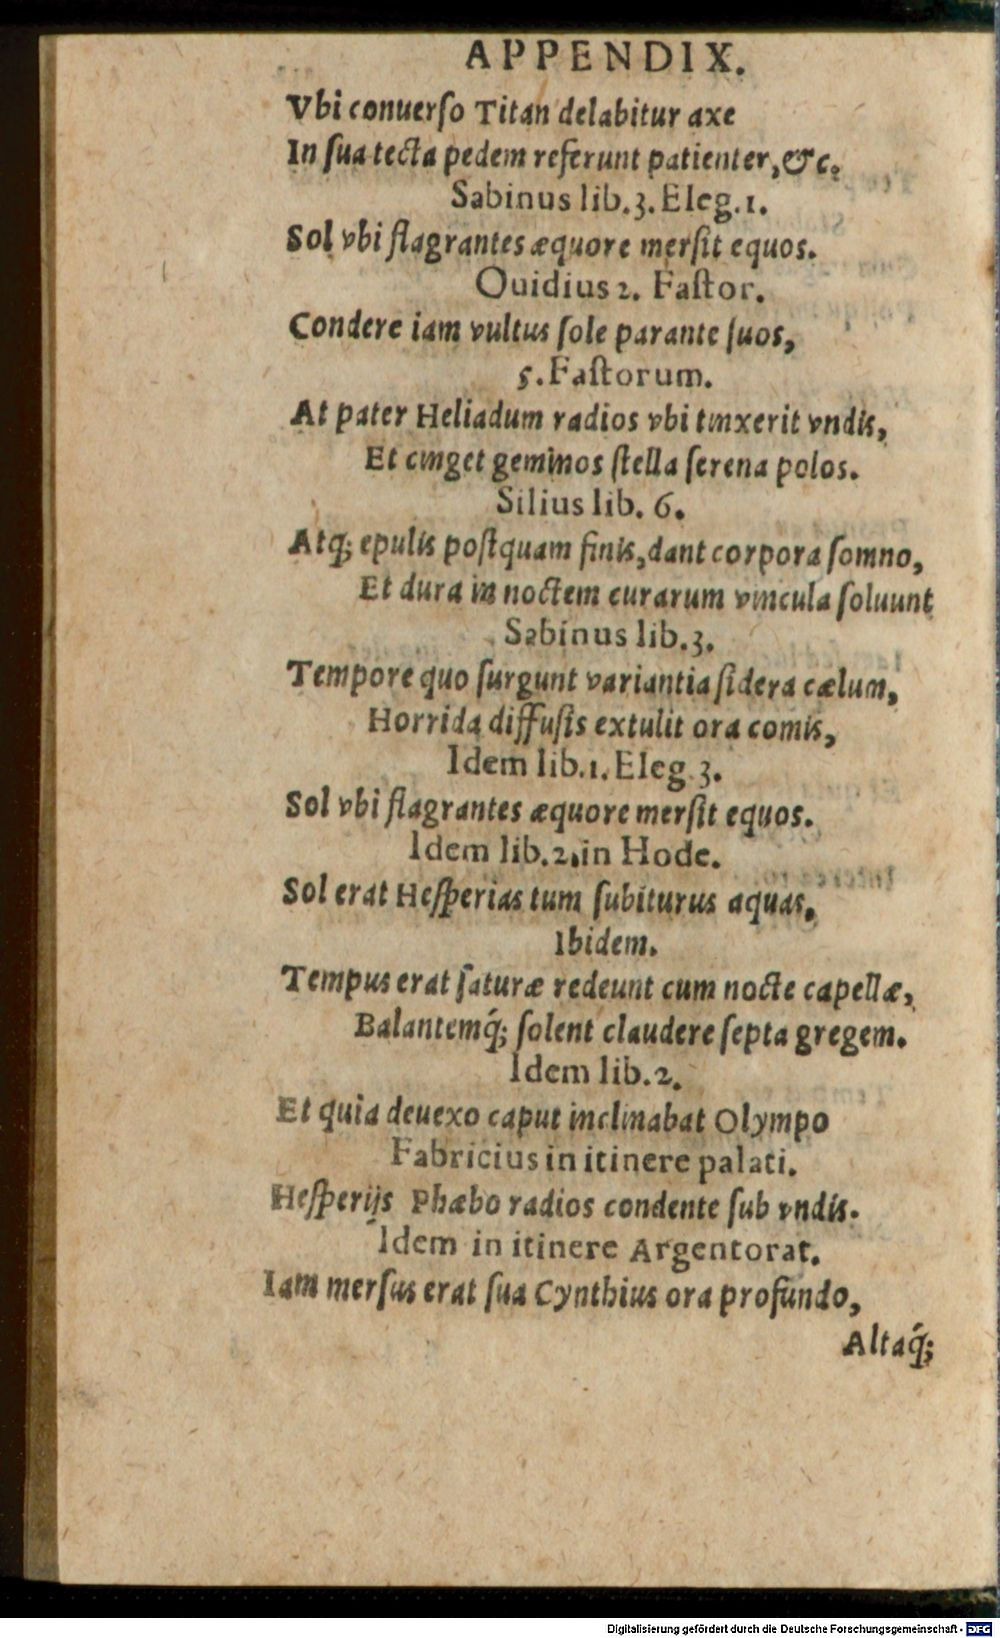 APPENDIX.
Vbi conuerſo Titan delabitur axe
In ſua tecta pedem referunt patienter, &c.
Sabinus lib.3. Eleg.1.
Sol vbi flagrantes æquore merſit equos.
Ouidius 2. Faſtor.
Condere iam vultus ſole parante ſuos,
5. Faſtorum.
At pater Heliadum radios vbi tinxerit vndis,
Et cinget geminos ſtella ſerena polos.
Silius lib. 6.
Atq; epulis poſtquam finis, dant corpora ſomno,
Et dura in noctem curarum vincula ſoluunt
Sabinus lib.3.
Tempore quo ſurgunt variantia ſidera cælum,
Horrida diffuſis extulit ora comis,
Idem lib.1. Eleg 3.
Sol vbi flagrantes æquore merſit equos.
Idem lib.2. in Hode.
Sol erat Heſperias tum ſubiturus aquas,
Ibidem.
Tempus erat ſaturæ redeunt cum nocte capellæ,
Balantemq́; ſolent claudere ſepta gregem.
Idem lib.2.
Et quia deuexo caput inclinabat Olympo
Fabricius in itinere palati.
Heſperijs Phæbo radios condente ſub vndis.
Idem in itinere Argentorat.
Iam merſus erat ſua Cynthius ora profundo,
Altaq́;
Digitalisierung gefördert durch die Deutsche Forschungsgemeinschaft - DFG